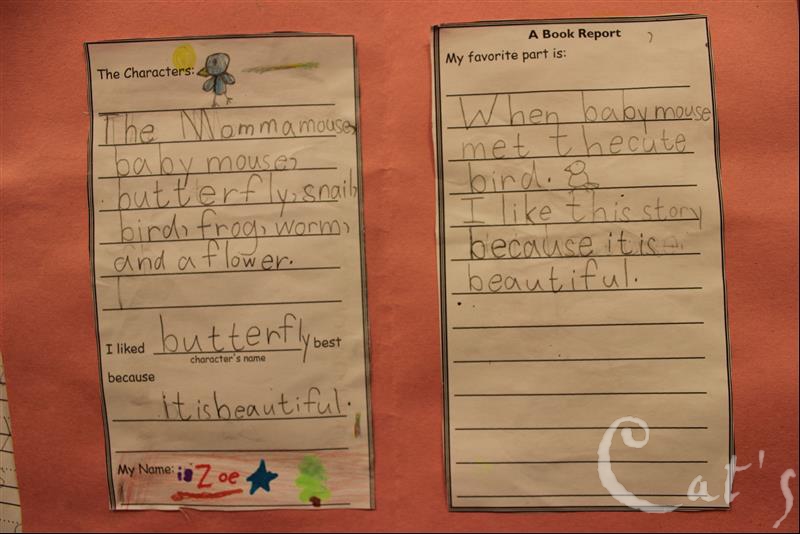 The Characters:
The Mommamouse,
baby mouse,
butterfly, snail,
bird, frog, worm,
and a flower.
I liked butterfly best
character's name
because
it is beautiful.
My Name: is Zoe
A Book Report
My favorite part is:
When baby mouse
met the cute
bird.
I like this story
because it is
beautiful.
Cat's